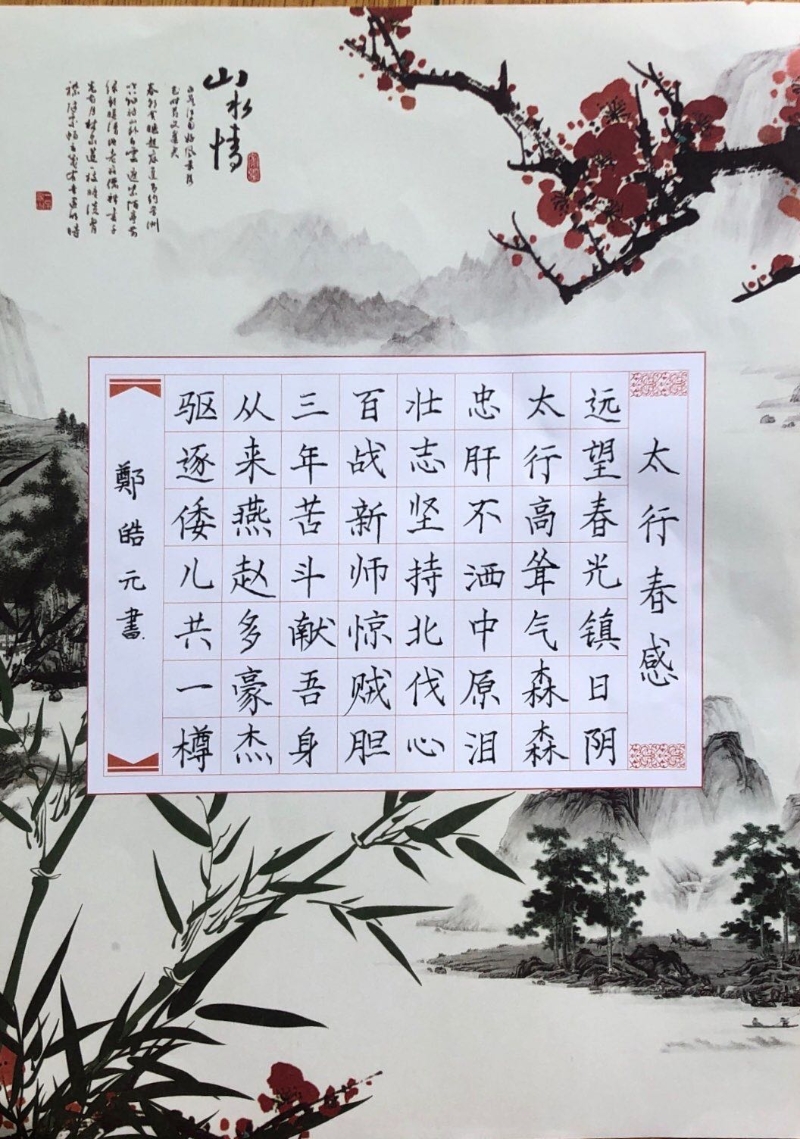 山水情
太行春感
远望春光镇日阴
太行高耸气森森
忠肝不洒中原泪
壮志坚持北伐心
百战新师惊贼胆
三年苦斗献吾身
从来燕赵多豪杰
驱逐倭儿共一樽
鄭皓元書